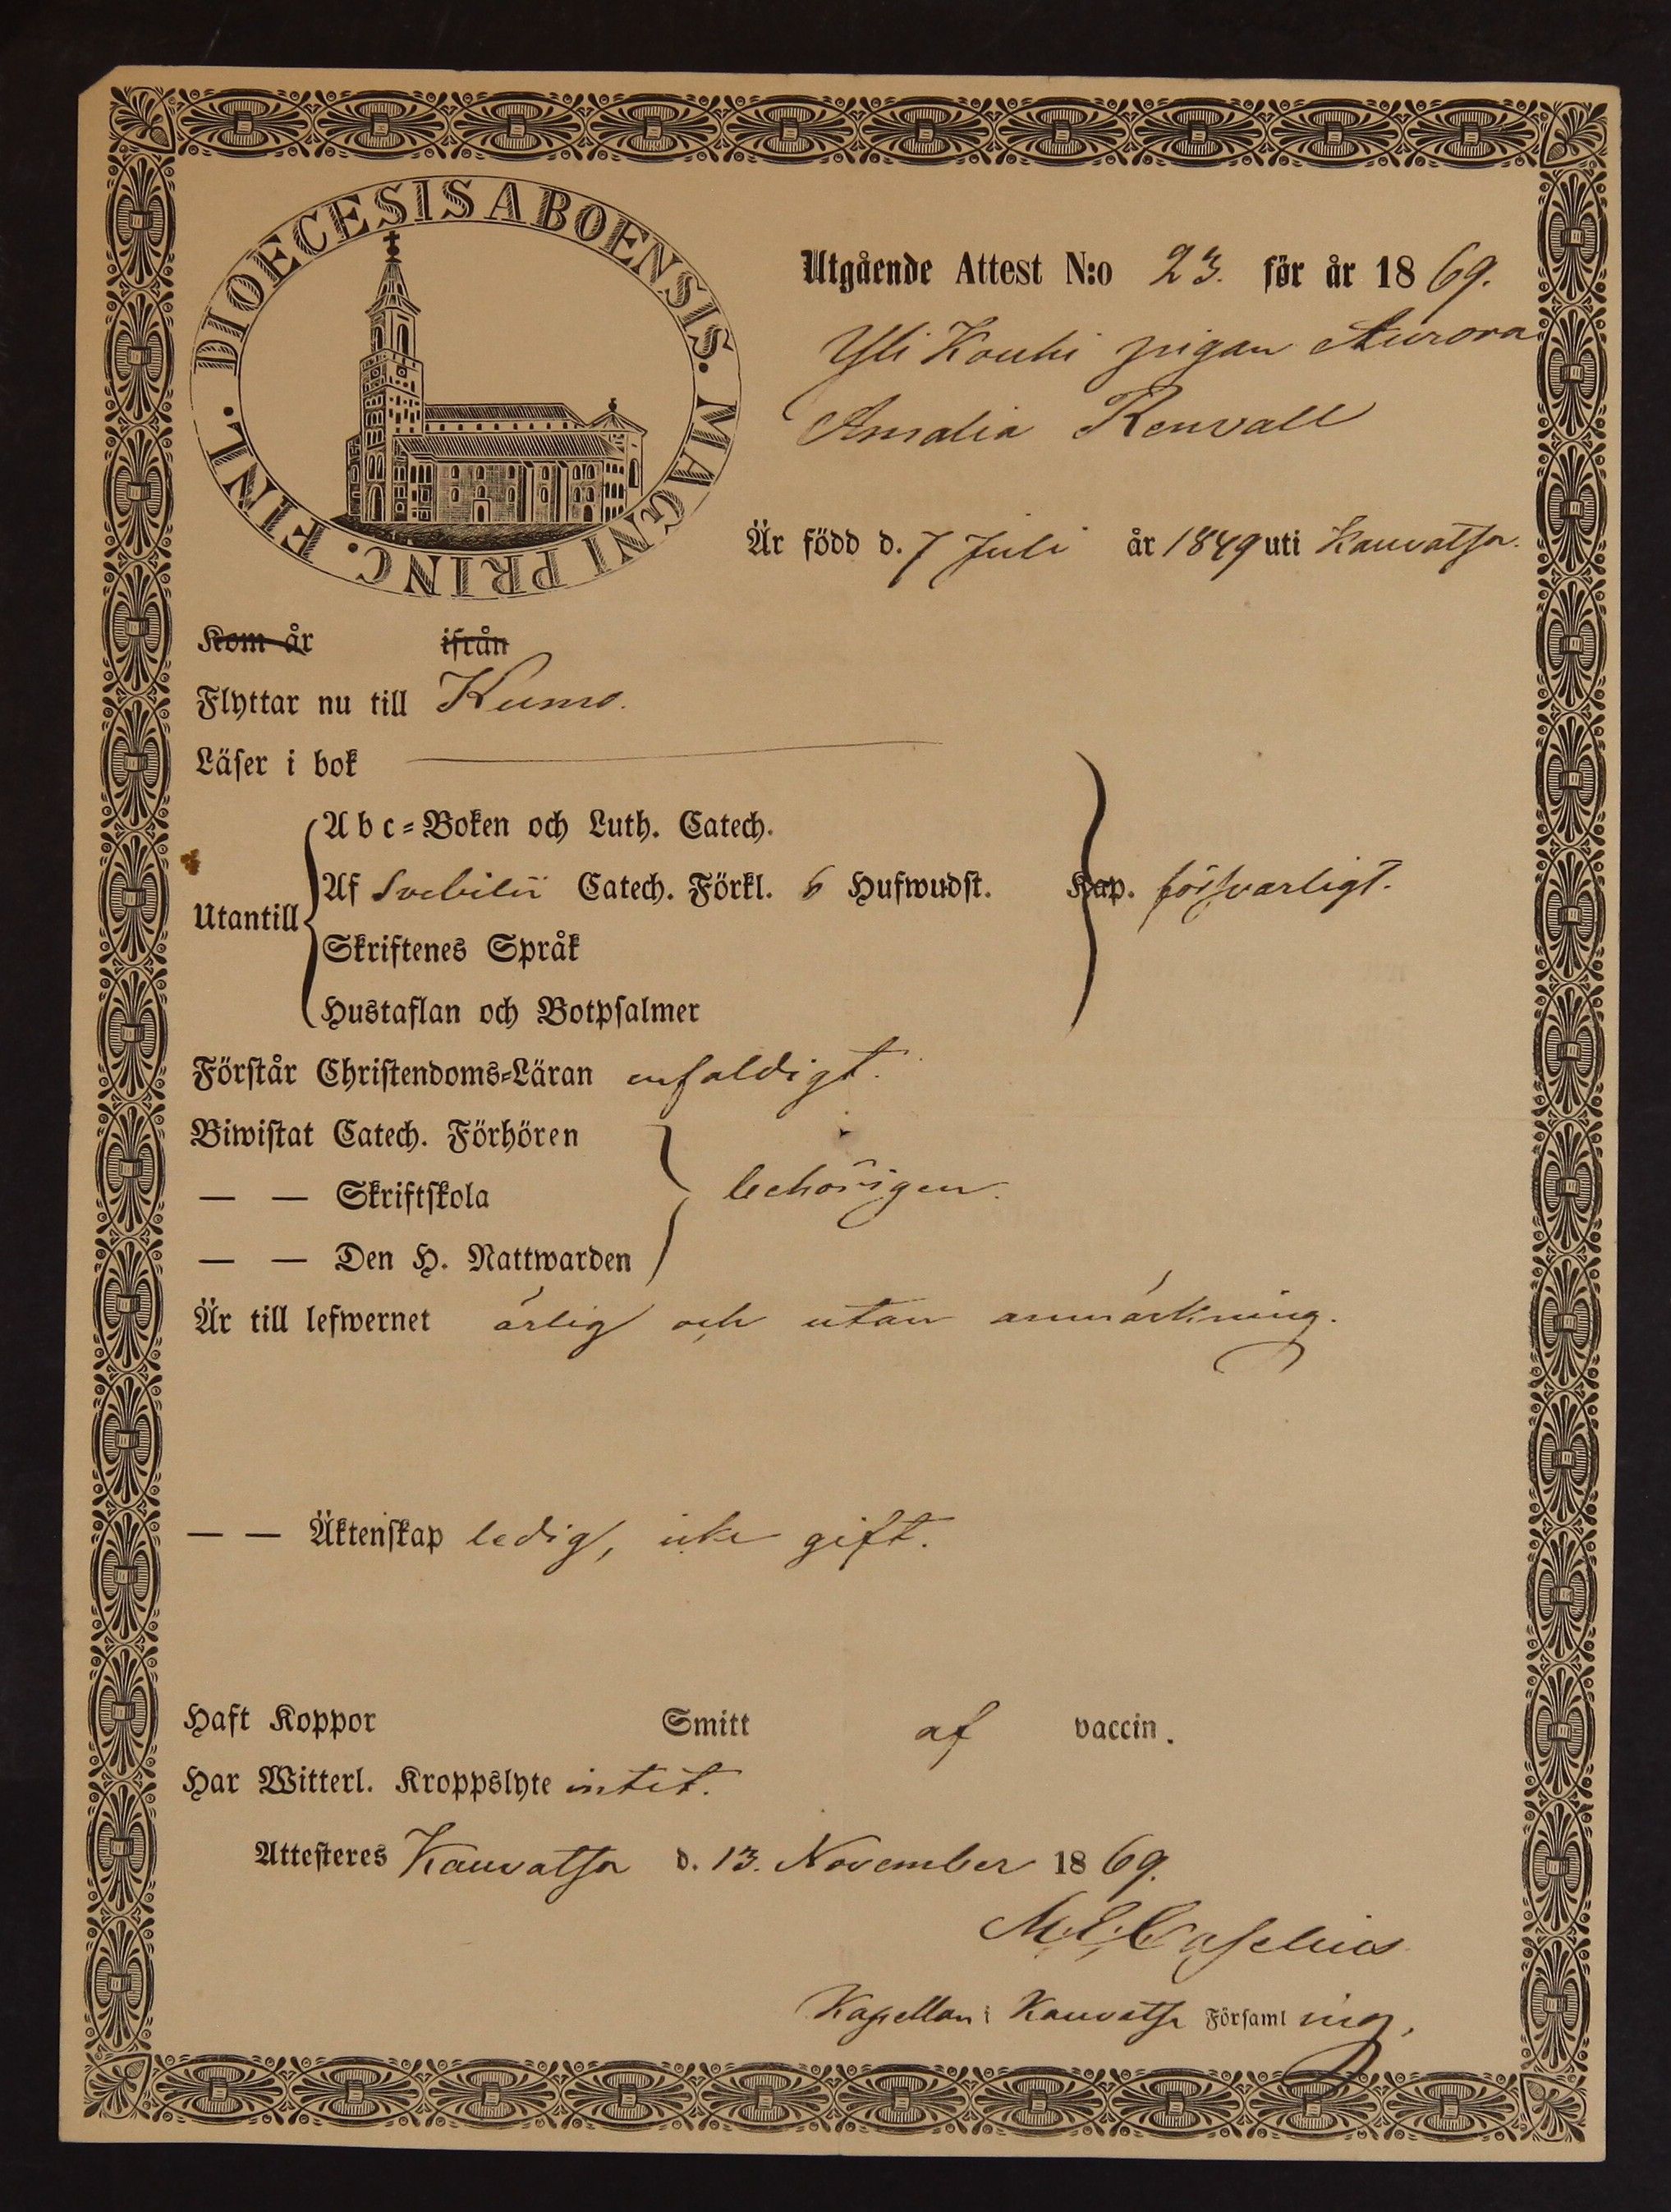 DIOECESIS ABOENSIS. MAGNI PRINC. FINL.
Utgående Attest N:o 23. för år 1869.
Yli Kouhi pigan Aurora
Amalia Renvall
Är född d. 7 Juli år 1849 uti Kauvatsa.
Kom år ifrån
Flyttar nu till Kumo.
Läser i bok
Utantill
Abc-Boken och Luth. Catech.
Af Svebilii Catech. Förkl. 6 Hufwudst. Kap. försvarligt.
Skriftenes Språk
Hustaflan och Botpsalmer
Förstår Christendoms-Läran enfaldigt.
Biwistat Catech. Förhören
— — Skriftskola behörigen.
— — Den H. Nattwarden
Är till lefwernet ärlig och utan anmärkning.
— — Äktenskap ledig, icke gift.
Haft Koppor Smitt af vaccin.
Har Witterl. Kroppslyte intet.
Attesteres Kauvatsa d. 13. November 1869.
Kapellan i Kauvatsa Församling.